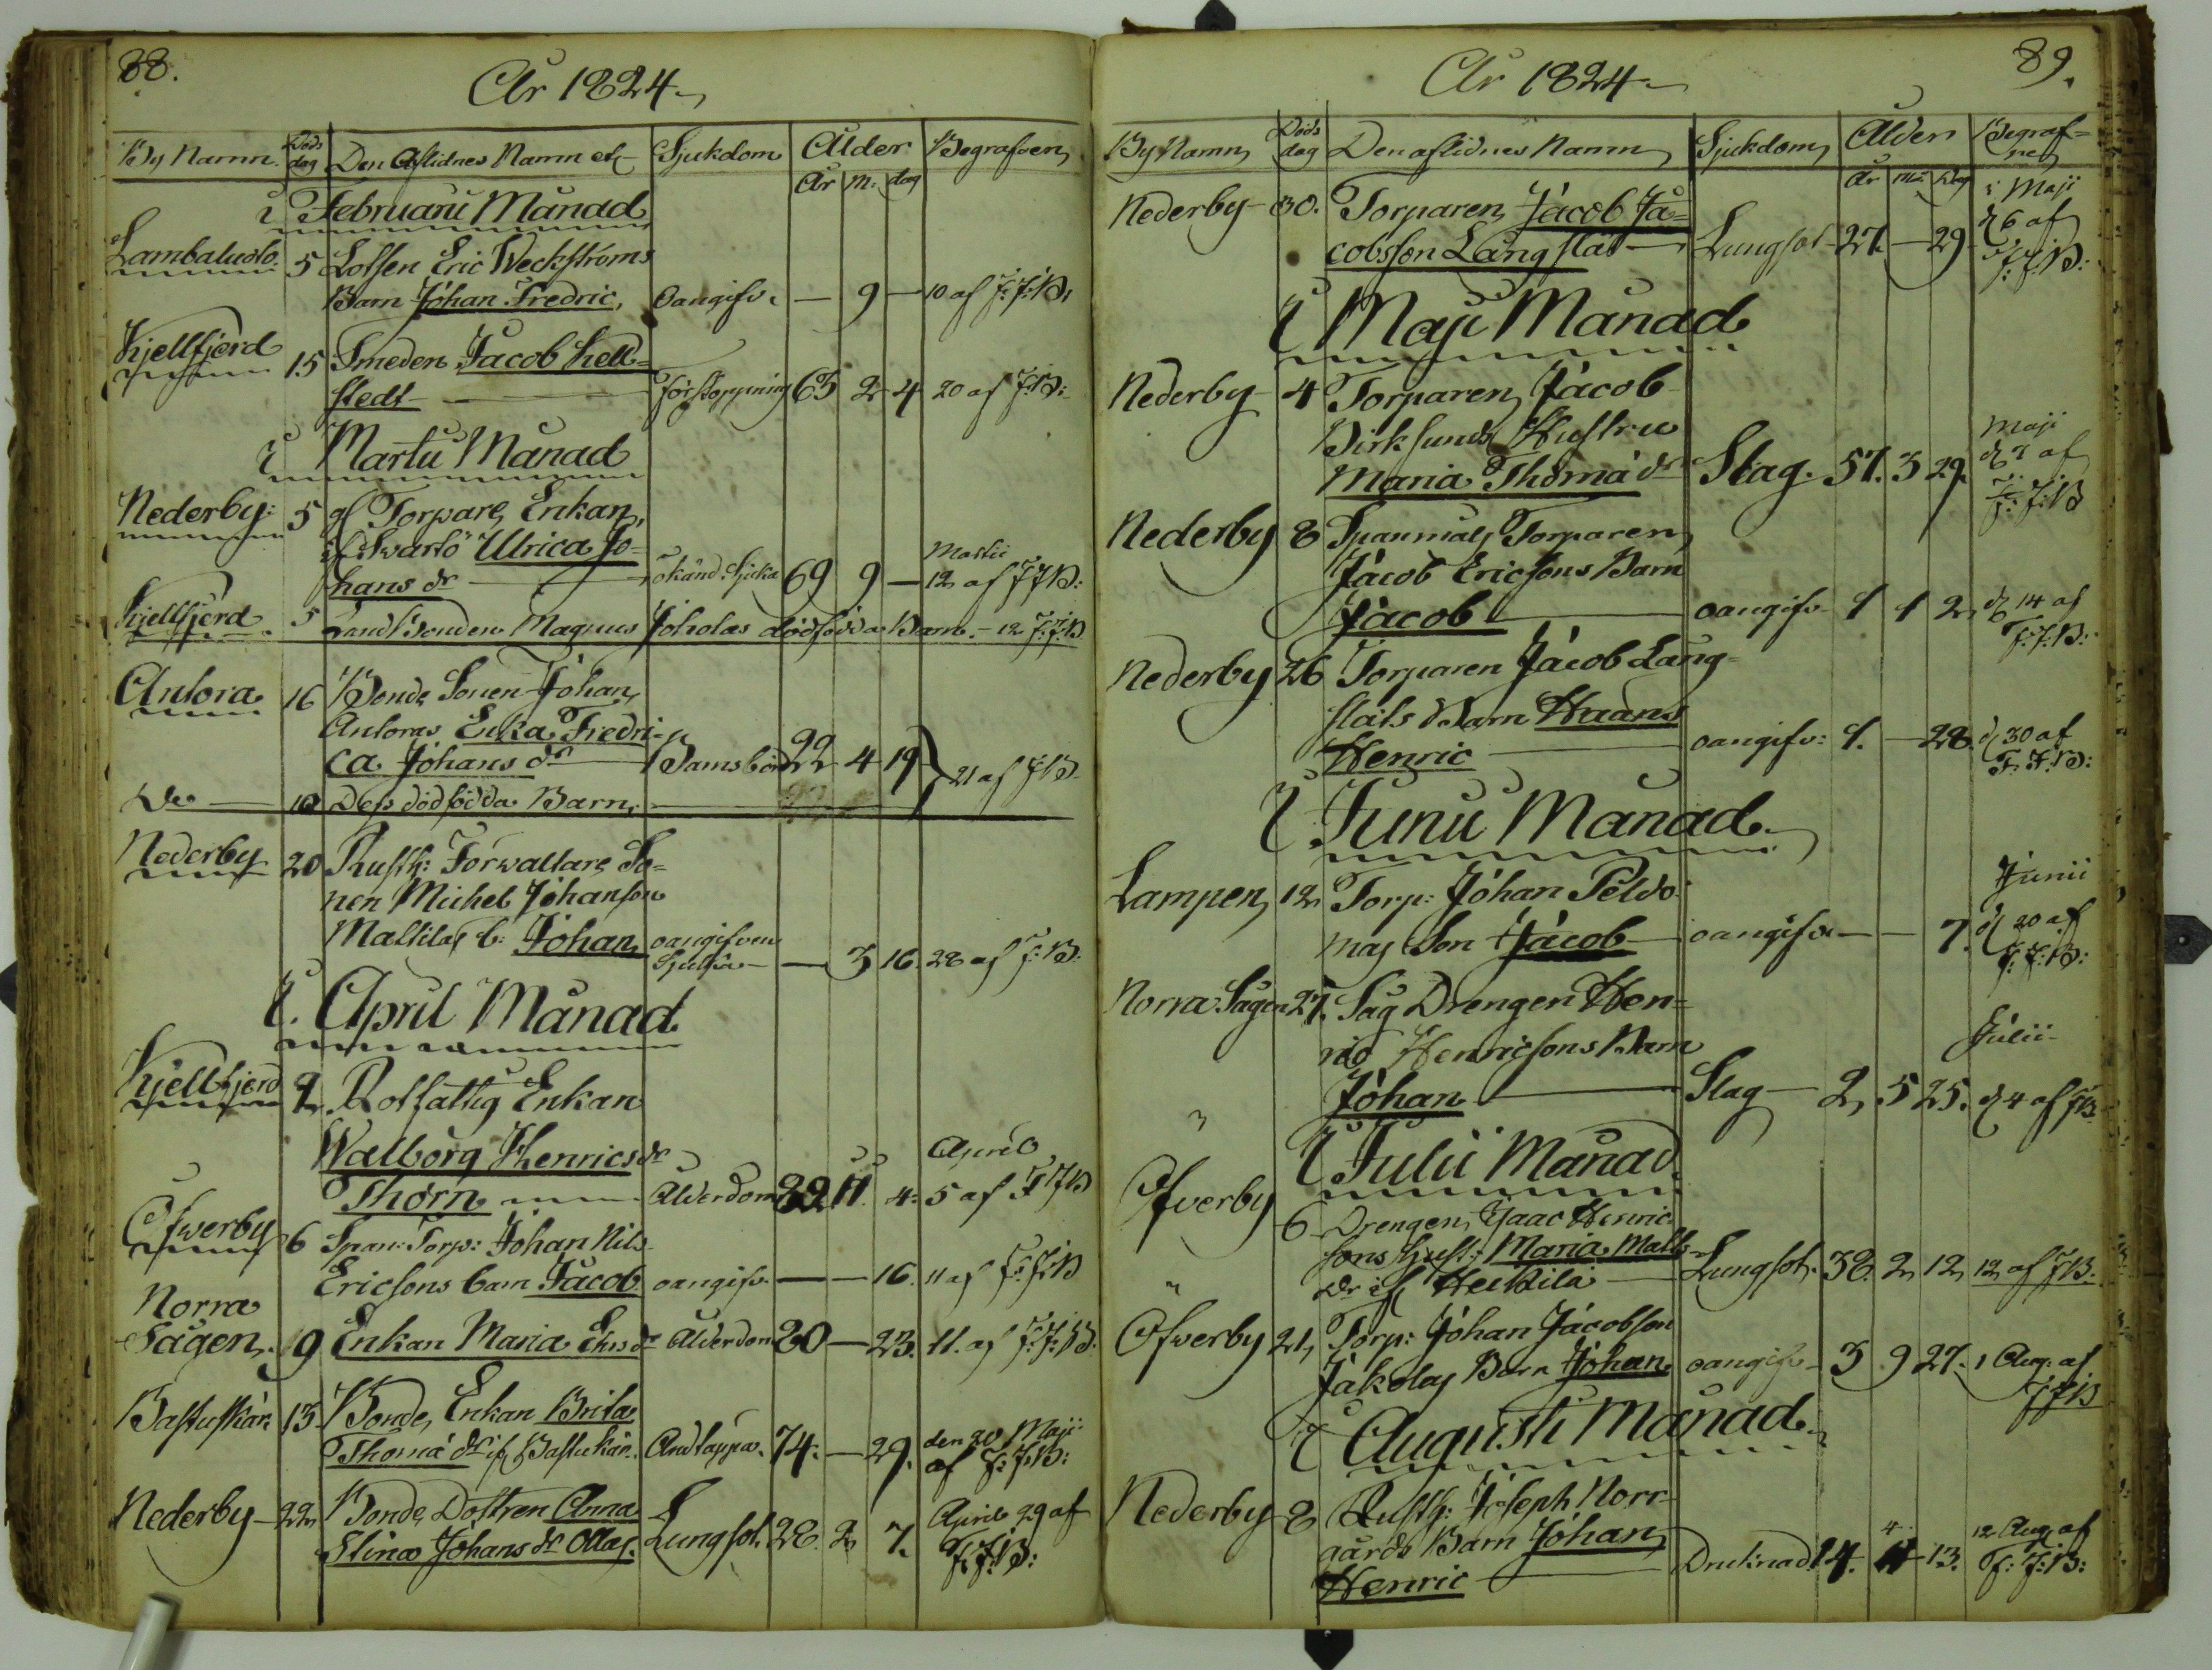 88.
År 1824
By Namn. Döds dag Den Aflidnes Namn etc Sjukdom Ålder Begrafven
År M: dag
I Februarii Månad
Lambaludo. 5 Lotsen Eric Weckströms
Barn Johan Fredric, Oangifv. — 9 — 10 af F: F: B:
Kjellfjerd 15 Smeden Jacob Hell=
stedt — Förstoppning 63 2 4 20 af F: B:
I Martii Månad
Nederby: 5 gl Torpare Enkan,
if Swartö Ulrica Jo=
hans dr — okänd Sjukd 69 9 — Martii 12 af F F B:
Kjellfjerd 5 Landbonden Magnus Joholas dödfödda Barn. — 12 F: F: B.
Antora 16 Bonde Sonen Johan
Antoras Enka Fredri=
ca Johans dr Barnsbörd 22 4 19 } 21 af F B
Do — 10 Dess dödfödda Barn,
Nederby 20 Rusth: Förwaltare So=
nen Michel Johanson
Mattilas b: Johan oangifven Sjukdom — 3 16. 28 af F: B:
I. April Månad
Kjellfjerd 2. Rotfattig Enkan
Walborg Henricsdr
Thorn Ålderdom 82 11. 4: April 5 af F F B
Öfwerby 6 Span: Torp: Johan Nils
Ericsons barn Jacob oangifv. — — 16. 11 af F: F: B
Norra
Sågen. 9 Enkan Maria Ehrsdr Ålderdom 80 — 23. 11. af F: F: B.
Bastuskär. 13 Bonde Enkan Brita
Thomä dr if Bastuskär. Andtäppa. 74. — 29. den 20 Maji af F: F: B:
Nederby 22 Bonde Dottren Anna
Stina Johans dr Ollas. Lungsot. 28. 2 7. April 29 af F: F: B:
89.
År 1824
By Namn Döds dag Den aflidnes Namn Sjukdom Ålder Begraf=
ne
År Må. Dag
Nederby 30. Torparen Jacob Ja=
cobsson Långslät Lungsot 27. — 29 i Maji d 6 af F: F: B:
I Maji Månad
Nederby 4 Torparen Jacob
Birksunds Hustru
Maria Thomädr Slag. 57. 3 29. Maji d 8 af F: F: B
Nederby 8 Spanmåls Torparen
Jacob Ericsons Barn
Jacob — oangifv 1 1 2 d 14 af F: F: B:
Nederby 26 Torparen Jacob Lång=
släts Barn Haans
Henric — oangifv: 1. — 28. d 30 af F: F: B:
I Junii Månad
Lampen 12 Torp: Johan Peldo
mas Son Jacob oangifv — — 7. Junii d 20 af F: F: B:
Norra Sågen 27. Såg Drengen Hen=
ric Henricsons Barn
Johan — Slag — 2, 5 25. Julii d 4 af F B
I Julii Månad
Öfverby 6 Drengen Isaac Henric
sons Hust: Maria Matts
dr if Heikilä Lungsot. 38. 2 12 12 af F B.
Öfwerby 21, Torp: Johan Jacobsson
Jakolas Barn Johan oangifv 3 9 27. 1 Aug. af F F B
I Augusti Månad
Nederby 8 Rusth: Joseph Norr
gårds Barn Johan
Henric Druknad 14. 4 13. 12 Aug af F: F: B: